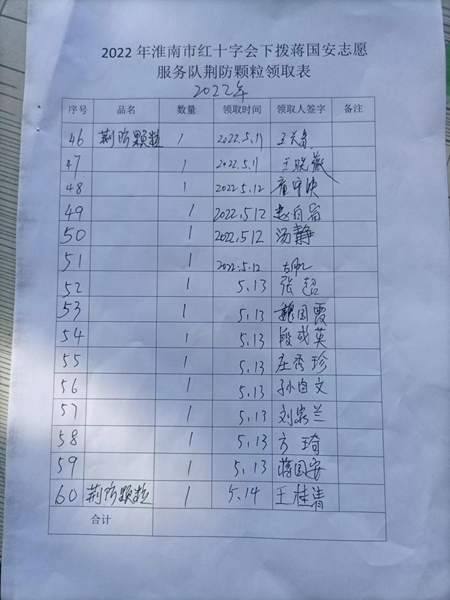 2022年淮南市红十字会下拨蒋国安志愿
服务队荆防颗粒领取表
2022年
序号 品名 数量 领取时间 领取人签字 备注
46 荆防颗粒 1 2022.5.11
47 1 2022.5.11 王晓薇
48 1 2022.5.12
49 1 2022.5.12
50 1 2022.5.12 汤静
51 1 2022.5.12
52 1 5.13 张超
53 1 5.13 魏国霞
54 1 5.13 段成英
55 1 5.13 庄秀珍
56 1 5.13 孙自文
57 1 5.13 刘家兰
58 1 5.13 方琦
59 1 5.13 蒋国安
60 荆防颗粒 1 5.14 王桂清
合计